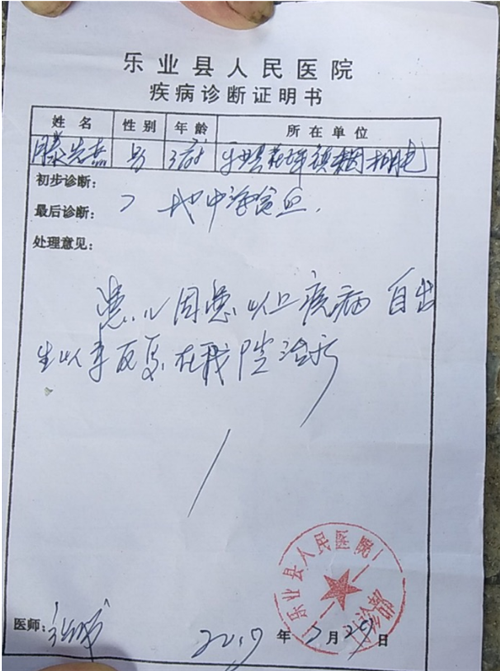 乐业县人民医院
疾病诊断证明书
姓名 性别 年龄 所在单位
男 3岁
初步诊断:
最后诊断: 地中海贫血.
处理意见:
患儿因患以上疾病 自出
生以来反复在我院治疗
乐业县人民医院
医师: 年 月29日